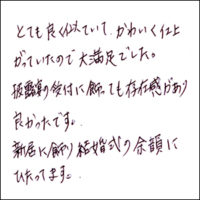 とても良く似ていて、かわいく仕上
がっていたので大満足でした。
披露宴の受付に飾っても存在感があり
良かったです。
新居に飾り結婚式の余韻に
ひたってます。